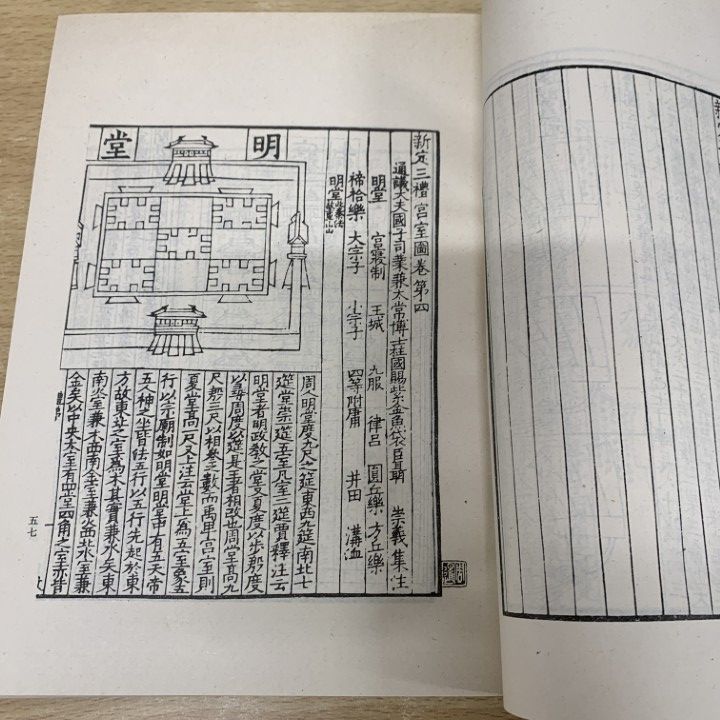 新定三禮宮室圖卷第四
通議大夫國子司業兼太常博士柱國賜紫金魚袋臣聶 崇義集注
明堂 宮寢制 王城 九服 律呂 圓丘樂 方丘樂
禘祫樂 大宗子 小宗子 四等附庸 井田 溝洫
明堂
明堂
周人明堂度九尺之筵東西九筵南北七
筵堂崇一筵五室凡室二筵賈釋注云
明堂者明政教之堂又夏度以步殷度
以尋周度以筵是王者相改也周堂高九
尺殷三尺以相參之數而禹卑宮室則
夏堂高一尺又上注云堂上為五室象五
行以宗廟制如明堂明堂中有五天帝
五人神之坐皆法五行以五行先起於東
方故東北之室為木其實兼水矣東
南火室兼木西南金室兼火西北水室兼
金矣以中央太室有四堂四角之室亦皆
五七